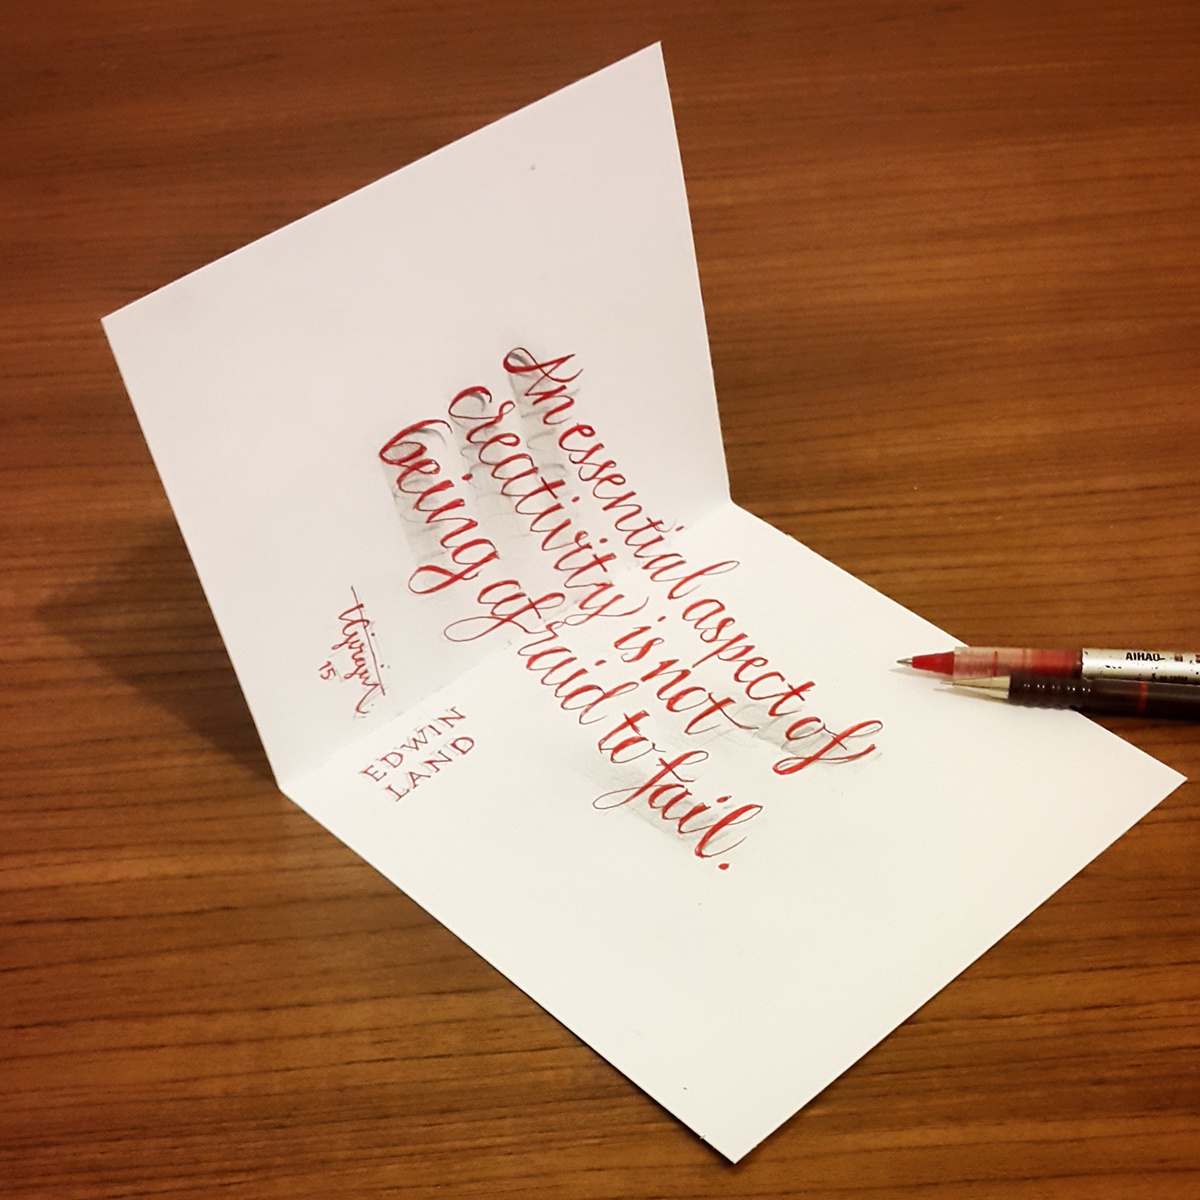 An essential aspect of
creativity is not
being afraid to fail.
EDWIN
LAND
15
AIHAO